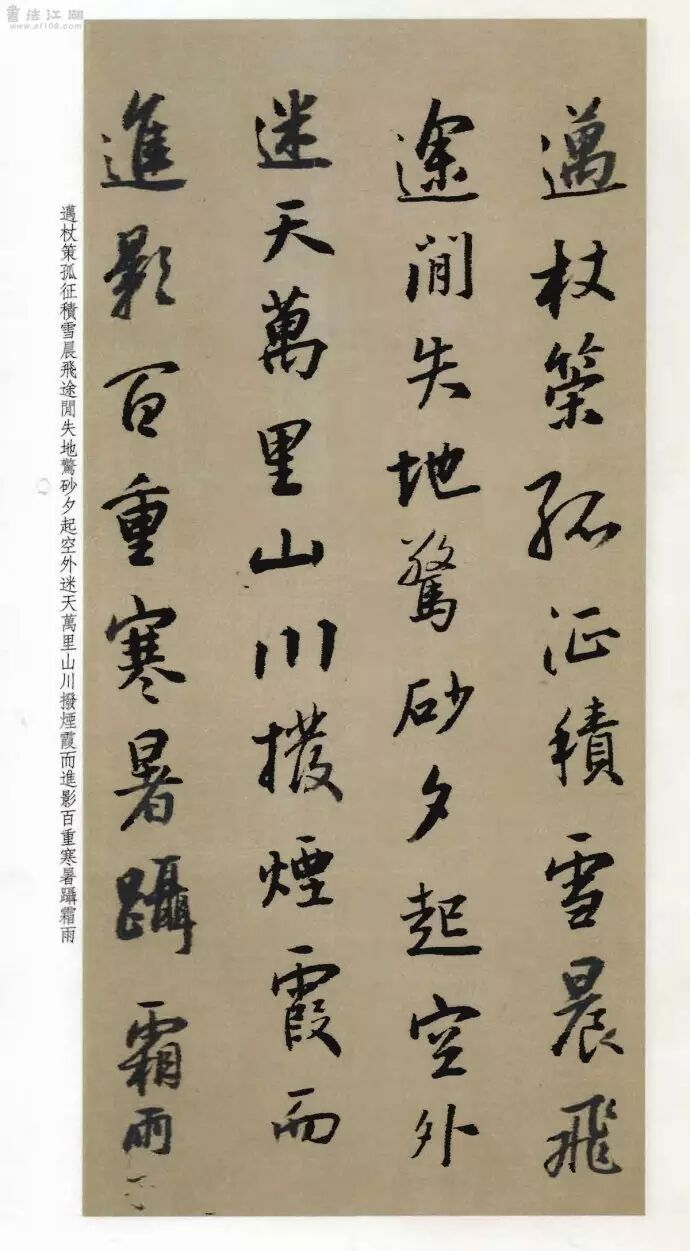 邁杖策孤征積雪晨飛
途閒失地驚砂夕起空外
迷天萬里山川撥煙霞而
進影百重寒暑躡霜雨
邁杖策孤征積雪晨飛途閒失地驚砂夕起空外迷天萬里山川撥煙霞而進影百重寒暑躡霜雨
書法江湖
www.sf108.com